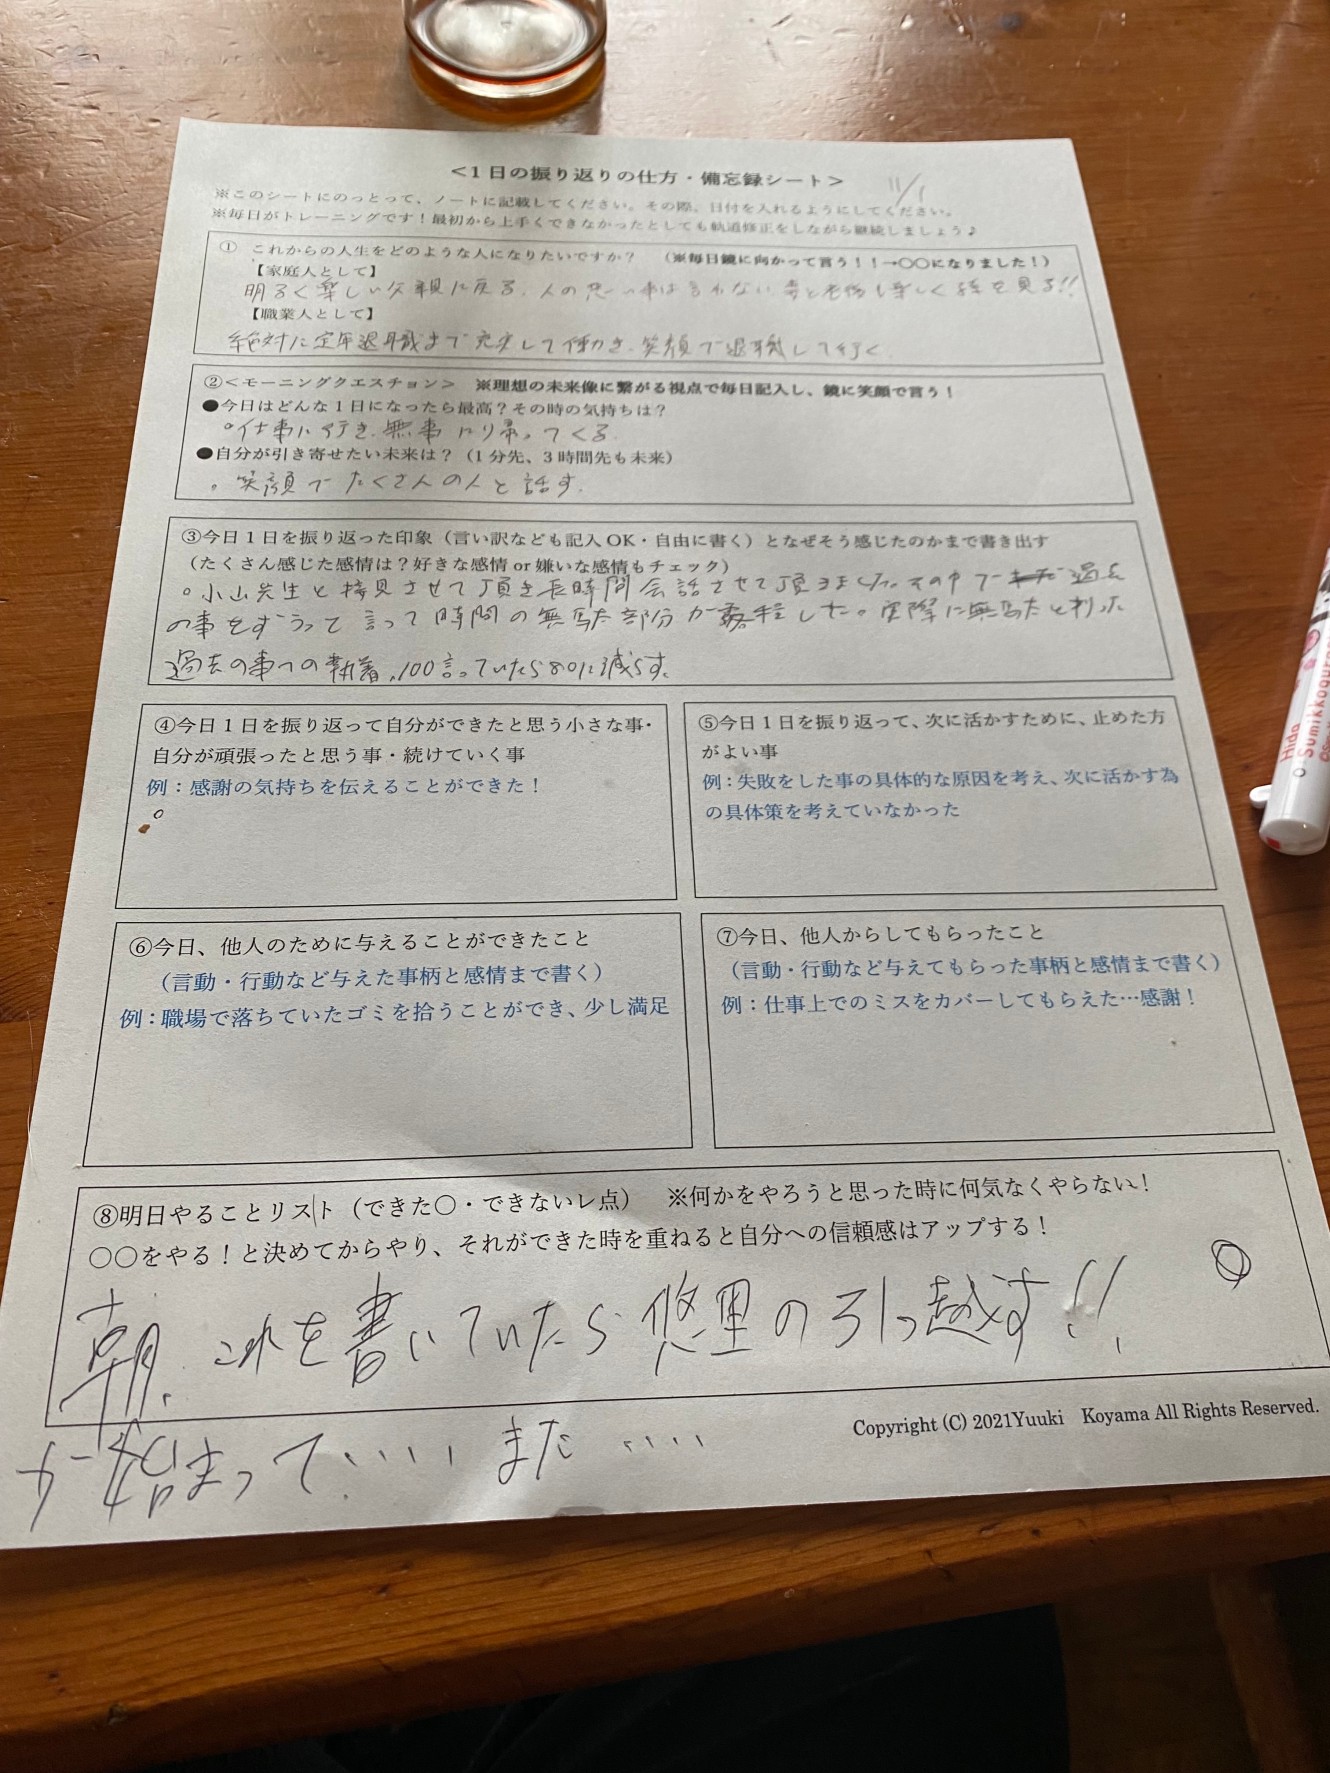 <1日の振り返りの仕方・備忘録シート> 11/1
※このシートにのっとって、ノートに記載してください。その際、日付を入れるようにしてください。
※毎日がトレーニングです！最初から上手くできなかったとしても軌道修正をしながら継続しましょう♪
① これからの人生をどのような人になりたいですか？ （※毎日鏡に向かって言う！！→○○になりました！）
【家庭人として】
明るく楽しい父親に戻る、人の悪い事は言わない、妻と老後も楽しく を見る!!
【職業人として】
絶対に定年退職まで充実して働き、笑顔で退職して行く
②＜モーニングクエスチョン＞ ※理想の未来像に繋がる視点で毎日記入し、鏡に笑顔で言う！
●今日はどんな1日になったら最高？その時の気持ちは？
○仕事に行き、無事に帰ってくる
●自分が引き寄せたい未来は？（1分先、3時間先も未来）
。笑顔でたくさんの人と話す.
③今日1日を振り返った印象（言い訳なども記入OK・自由に書く）となぜそう感じたのかまで書き出す
（たくさん感じた感情は？好きな感情or嫌いな感情もチェック）
○小山先生と 見させて頂き長時間会話させて頂きました。その中で 過去
の事をずうっと言って時間の無駄部分が した。実際に無駄だと判った
過去の事への執着、100言っていたら80に減らす。
④今日1日を振り返って自分ができたと思う小さな事・
自分が頑張ったと思う事・続けていく事
例：感謝の気持ちを伝えることができた！
○
⑤今日1日を振り返って、次に活かすために、止めた方
がよい事
例：失敗をした事の具体的な原因を考え、次に活かす為
の具体策を考えていなかった
⑥今日、他人のために与えることができたこと
（言動・行動など与えた事柄と感情まで書く）
例：職場で落ちていたゴミを拾うことができ、少し満足
⑦今日、他人からしてもらったこと
（言動・行動など与えてもらった事柄と感情まで書く）
例：仕事上でのミスをカバーしてもらえた…感謝！
⑧明日やることリスト（できた○・できないレ点） ※何かをやろうと思った時に何気なくやらない！
○○をやる！と決めてからやり、それができた時を重ねると自分への信頼感はアップする！
朝、これを書いていたら悠里の引っ越す!!
Copyright (C) 2021Yuuki Koyama All Rights Reserved.
が始まって、、、、、また、、、、
Hide
Sumikkogurashi